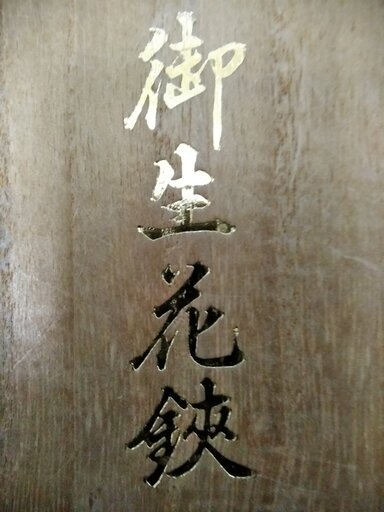 御生花鋏